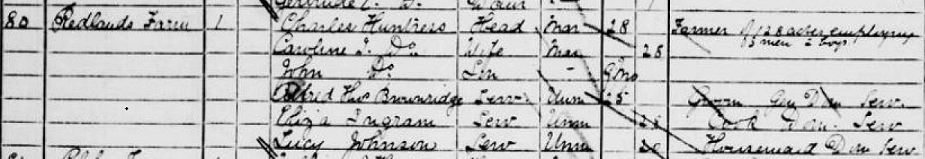 80 Redlands Farm 1 Charles Huntress Head Mar 28 Farmer of 128 acres employing
5 men 2 boys
Caroline I. Do. Wife Mar 28
John Do. Son - 9mo
Alfred Thos Brownridge Serv Unm 25 Groom Gen Dom Serv.
Eliza Ingram Serv Unm 28 Cook Dom. Serv
Lucy Johnson Serv Unm 20 Housemaid Dom Serv